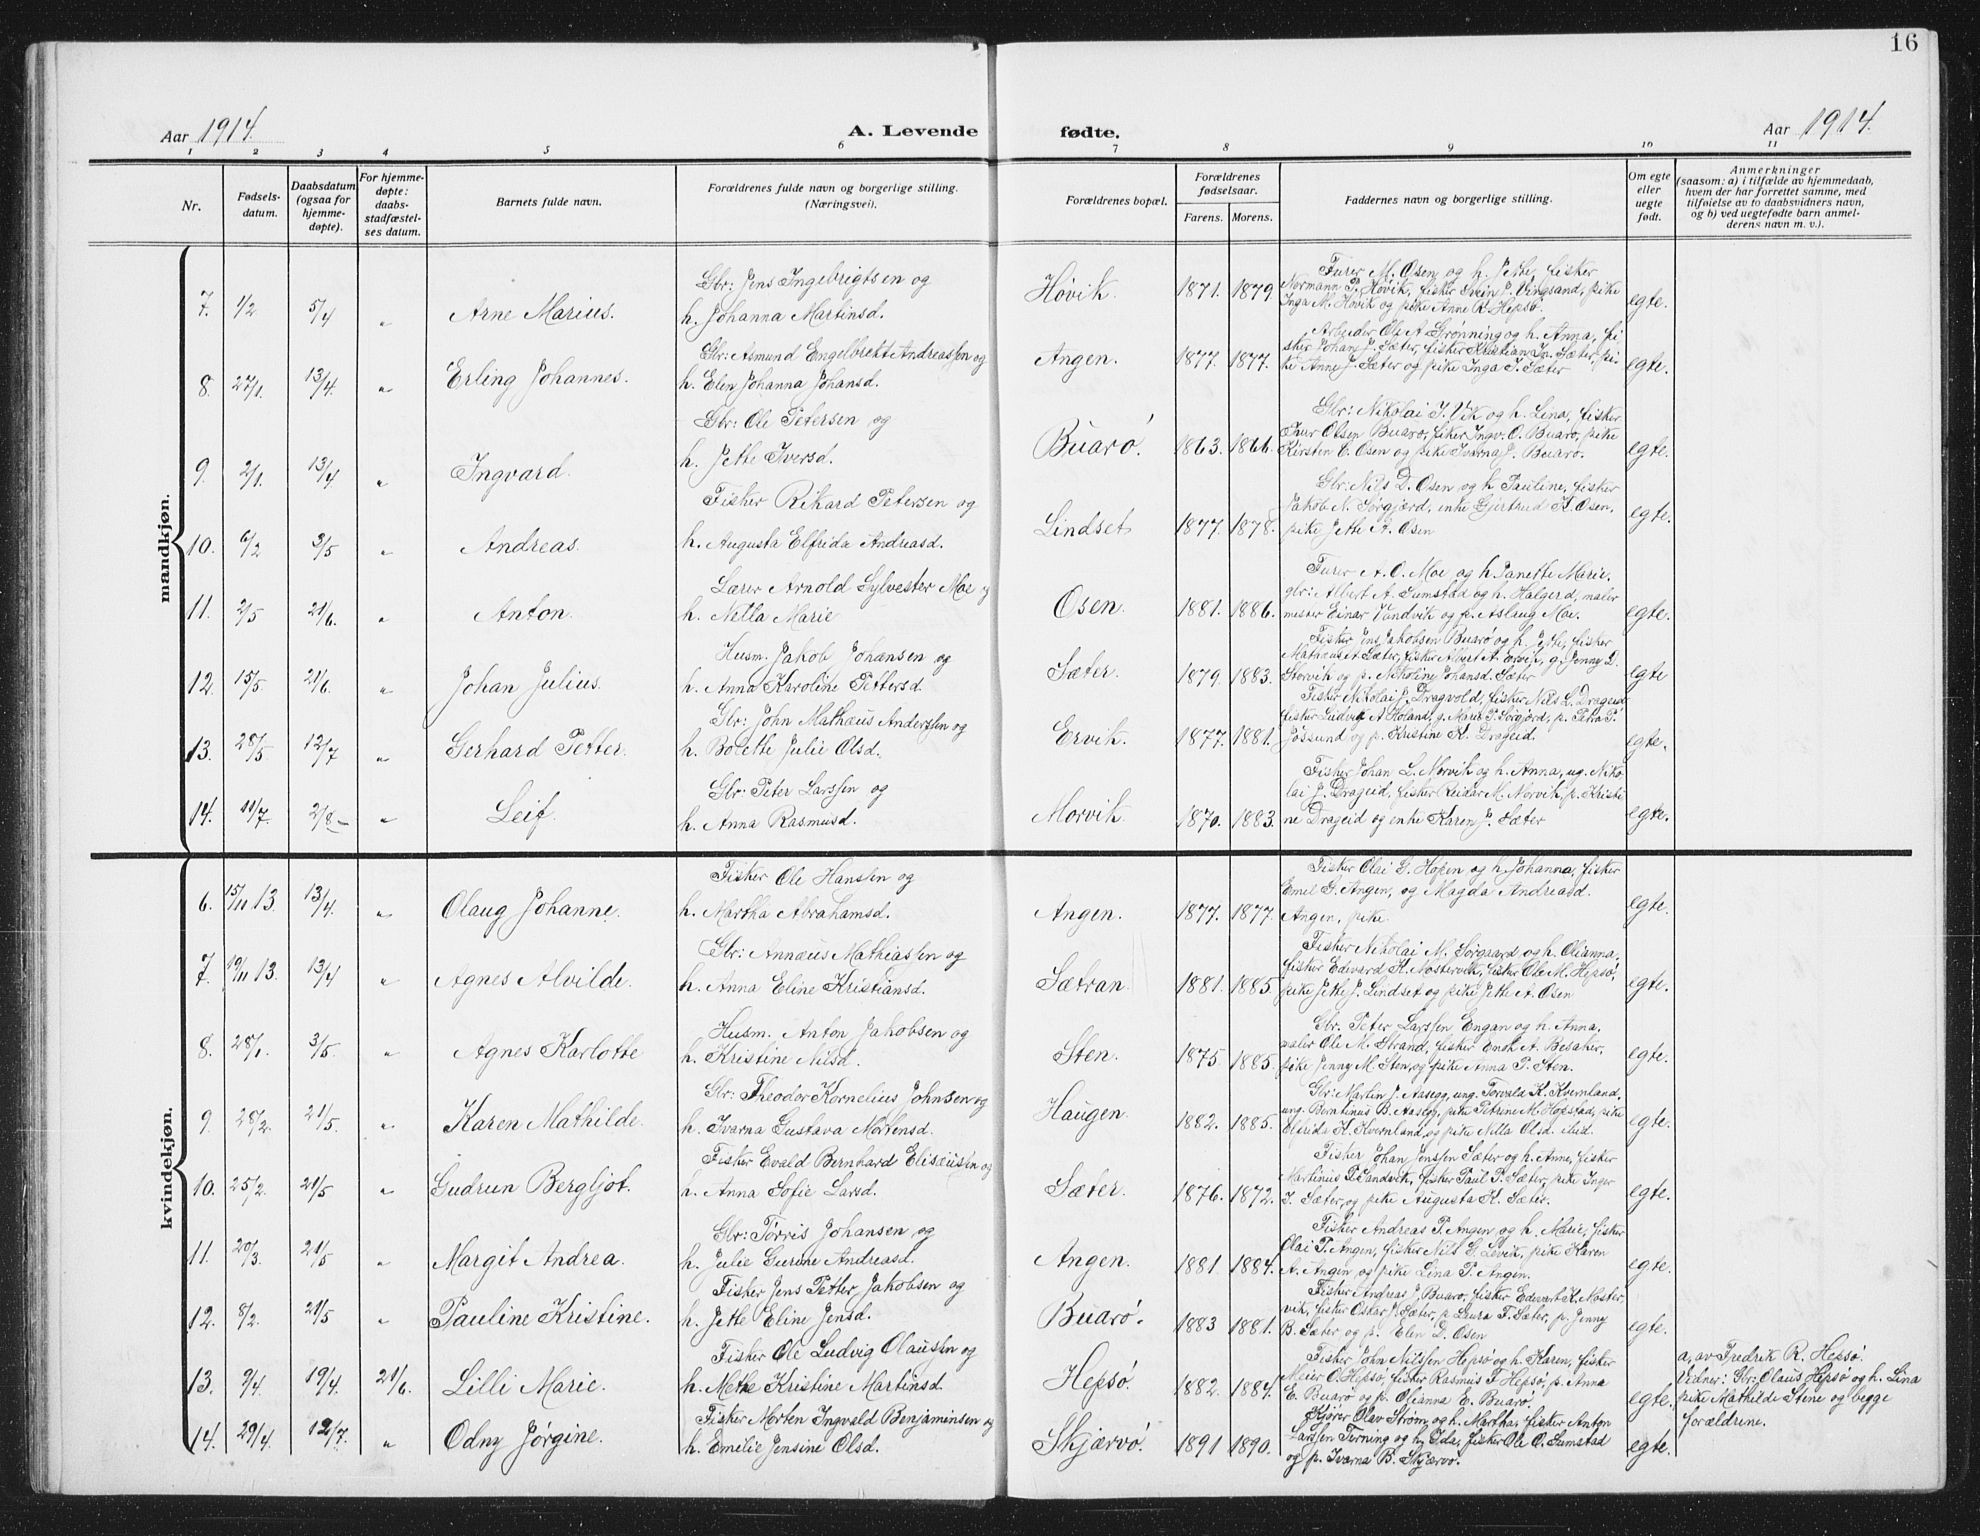 16
Aar 1914.
A. Levende fødte.
Aar 1914.
1 2 3 4 5 6 7 8 9 10 11
Nr.
Fødsels-
datum.
Daabsdatum
(ogsaa for
hjemme-
døpte).
For hjemme-
døpte:
daabs-
stadfæstel-
ses datum.
Barnets fulde navn.
Forældrenes fulde navn og borgerlige stilling.
(Næringsvei).
Forældrenes bopæl.
Forældrenes
fødselsaar.
Farens. Morens.
Faddernes navn og borgerlige stilling.
Om egte
eller
uegte
født.
Anmerkninger
(saasom: a) i tilfælde av hjemmedaab,
hvem der har forrettet samme, med
tilføielse av to daabsvidners navn,
og b) ved uegtefødte barn anmel-
derens navn m. v.).
mandkjøn.
7. 1/2 5/4 " Arne Marius.
Gbr: Jens Ingebrigtsen og
h. Johanna Martinsd.
Høvik. 1871. 1879.
Furer M. Osen og h. Jette, fisker
Normann P. Høvik, fisker Svein J. Vingsand, pike
Inga M. Høvik og pike Anne R. Hepsø.
egte.
8. 27/1. 13/4. " Erling Johannes.
Gbr: Asmund Engelbrekt Andreassen og
h. Elen Johanna Johansd.
Angen. 1877. 1877.
Arbeider Ole A. Grønning og h. Anna, fi-
sker Johan J. Sæter, fisker Kristian Jn. Sæter, pi-
ke Anne J. Sæter og pike Inga J. Sæter
egte.
9. 2/1. 13/4 " Ingvard.
Gbr: Ole Petersen og
h. Jette Iversd.
Buarø. 1863. 1866.
Gbr: Nikolai J. Vik og h. Lina, fisker
Iver Olsen Buarø, fisker Ingv. O. Buarø, pike
Kirsten E. Osen og pike Ivarna J. Buarø.
egte.
10. 6/2 3/5 " Andreas.
Fisker Rikard Petersen og
h. Augusta Elfrida Andreasd.
Lindset 1877. 1878.
Gbr: Nils D. Osen og h Pauline, fisker
Jakob N. Sørgjerd, enke Gjertrud K. Osen,
pike Jette A. Osen
egte.
11. 2/5 21/6. " Anton.
Lærer Arnold Sylvester Moe og
h. Nella Marie
Osen. 1881. 1886.
Furer A. O. Moe og h Janette Marie.
gbr: Albert A. Sumstad og h. Halgerd, maler
mester Einar Vandvik og p. Aslaug Moe.
egte.
12. 15/5. 21/6. " Johan Julius.
Husm. Jakob Johansen og
h. Anna Karoline Pettersd.
Sæter. 1879. 1883.
Fisker Jens Jakobsen Buarø og h. Jette, fisker
Mathæus A. Sæter, fisker Albert A. Ervik, g. Jenny D.
Storvik og p. Nikoline Johansd. Sæter
egte
13. 28/5. 12/7 " Gerhard Petter.
Gbr: John Mathæus Anderssen og
h. Bolette Julie Olsd.
Ervik. 1877. 1881.
Fisker Nikolai J. Dragvold, fisker Nils L. Drageid
fisker Ludvik A Holand, g. Marie P. Sørgjerd, p. Petra P.
Jøssund og p. Kristine K. Drageid.
egte.
14. 11/7. 2/8 " Leif.
Gbr: Peter Larssen og
h. Anna Rasmusd.
Morvik. 1870. 1883.
Fisker Johan L. Morvik og h. Anna, ug. Niko-
lai J. Drageid, fisker Reidar M. Morvik, p. Kristi
ne Drageid og enke Karen J. Sæter
egte.
kvindekjøn.
6. 15/11 13. 13/4. " Olaug Johanne.
Fisker Ole Hanssen og
h. Martha Abrahamsd.
Angen. 1877. 1877.
Fisker Olai G. Hopen og h. Johanna, fisker
Emil G. Angen, og Magda Andreasd.
Angen, pike.
egte.
7. 19/11 13. 13/4 " Agnes Alvilde.
Gbr: Annæus Mathiassen og
h. Anna Eline Kristiansd.
Sætran. 1881. 1885.
Fisker Nikolai M. Sørgaard og h. Olianna,
fisker Edevard K. Mostervik, fisker Ole M. Hepsø,
pike Jette J. Lindset og pike Jette A. Osen
egte.
8. 28/1. 3/5. " Agnes Karlotte
Husm. Anton Jakobsen og
h. Kristine Nilsd.
Sten. 1875. 1885.
Gbr. Peter Larssen Engan og h. Anna,
maler Ole M. Strand, fisker Enok A. Besaker,
pike Jenny M. Sten, og pike Anna P. Sten.
egte.
9. 28/2. 21/5. " Karen Mathilde.
Gbr: Theodor Kornelius Johnsen og
h. Ivarna Gustava Mortensd.
Haugen. 1882. 1885.
Gbr: Martin J. Aasegg, ung. Torvald K. Kvernland,
ung. Berntinus B. Aasegg, pike Petrine M. Hopstad, pike
Elfrida K. Kvernland, og pike Nilla Olsd. ibid.
egte.
10. 25/2. 21/5 " Gudrun Bergljot.
Fisker Evald Bernhard Elisæussen og
h. Anna Sofie Larsd.
Sæter. 1876. 1872.
Fisker Johan Jenssen Sæter og h. Anne, fisker
Martinus P. Sandvik, fisker Paul P. Sæter, pike Inger
J. Sæter, og pike Augusta K. Sæter.
egte.
11. 20/3 21/5 " Margit Andrea.
Gbr: Tørris Johansen og
h. Julie Gurine Andreasd.
Angen. 1881. 1884.
Fisker Andreas P. Angen og h. Marie, fisker
Olai P. Angen, fisker Nils G. Levik, pike Karen
A. Angen og pike Lina P. Angen.
egte.
12. 8/2. 21/5 " Pauline Kristine.
Fisker Jens Petter Jakobsen og
h. Jette Eline Jensd.
Buarø. 1883 1881.
Fisker Andreas J. Buarø, fisker Edevart K. Moster-
vik, fisker Oskar J. Sæter, p. Laura F. Sæter, p. Jenny
B. Sæter, og p. Elen D. Osen
egte.
13. 9/4. 19/4. 21/6. Lilli Marie.
Fisker Ole Ludvig Olaussen og
h. Mette Kristine Martinsd.
Hepsø. 1882. 1884.
Fisker John Nilssen Hepsø og h. Karen, fisker
Meier O. Hepsø, fisker Rasmus F. Hepsø, p. Anna
E. Buarø og p. Olianna E. Buarø.
egte.
a, av Fredrik R. Hepsø.
Vidner: Gbr: Olaus Hepsø og h. Lina
pike Mathilde Stene og begge
forældrene.
14. 29/4. 12/7. " Odny Jørgine.
Fisker Morten Ingvald Benjaminsen og
h. Emilie Jensine Olsd.
Skjærvø. 1891 1890.
Kjører Olav Strøm og h. Martha, fisker Anton
Larssen Terning og h. Ida, fisker Ole O. Sumstad
og p. Ivarna B. Skjærvø.
egte.